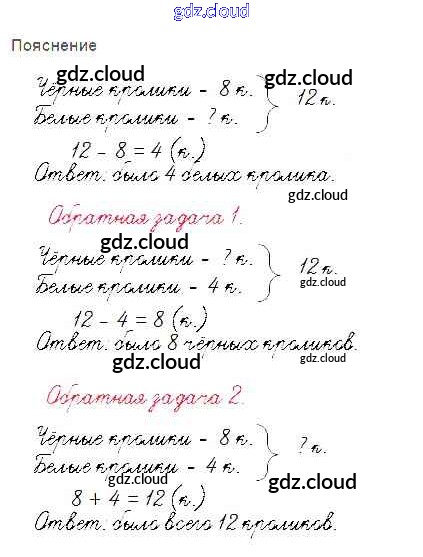 gdz.cloud
Пояснение
gdz.cloud
Чёрные кролики - 8 к.
gdz.cloud
12 к.
Белые кролики - ? к.
gdz.cloud
gdz.cloud
12 - 8 = 4 (к.)
Ответ: было 4 белых кролика.
gdz.cloud
Обратная задача 1.
gdz.cloud
Чёрные кролики - ? к.
12 к.
gdz.cloud
Белые кролики - 4 к.
12 - 4 = 8 (к.)
Ответ: было 8 чёрных кроликов.
gdz.cloud
gdz.cloud
Обратная задача 2.
Чёрные кролики - 8 к.
? к.
Белые кролики - 4 к.
gdz.cloud
gdz.cloud
8 + 4 = 12 (к.)
Ответ: было всего 12 кроликов.